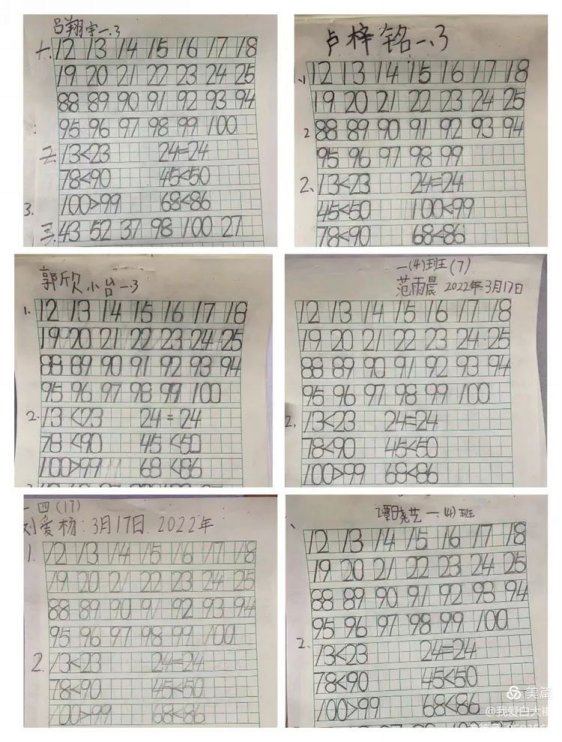 吕翔宇一.3
一. 12 13 14 15 16 17 18
19 20 21 22 23 24 25
88 89 90 91 92 93 94
95 96 97 98 99 100
二. 13<23 24=24
78<90 45<50
3. 100>99 68<86
三. 43 52 37 98 100 27
卢梓铭一.3
1. 12 13 14 15 16 17 18
19 20 21 22 23 24 25
2 88 89 90 91 92 93 94
95 96 97 98 99
2. 13<23 24=24
45<50 100<99
78<90 68<86
郭欣 一.3
1. 12 13 14 15 16 17 18
19 20 21 22 23 24 25
88 89 90 91 92 93 94
95 96 97 98 99 100
2. 13<23 24=24
78<90 45<50
100>99 68<86
一(4)班(7)
范雨晨 2022年3月17日
12 13 14 15 16 17 18
19 20 21 22 23 24 25
88 89 90 91 92 93 94
95 96 97 98 99 100
2. 13<23 24=24
78<90 45<50
100>99 68<86
一四(17)
刘爱杨:3月17日.2022年
1. 12 13 14 15 16 17 18
19 20 21 22 23 24 25
88 89 90 91 92 93 94
95 96 97 98 99 100
2. 13<23 24=24
78<90 45<50
100>99 68<86
一(4)班
12 13 14 15 16 17 18
19 20 21 22 23 24 25
88 89 90 91 92 93 94
95 96 97 98 99 100
2. 13<23 24=24
78<90 45<50
100>99 68<86
美篇